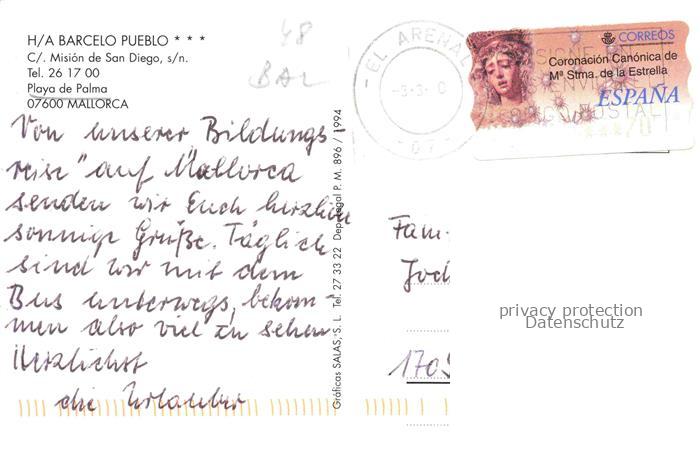 H/A BARCELO PUEBLO * * *
C/. Misión de San Diego, s/n.
Tel. 26 17 00
Playa de Palma
07600 MALLORCA
48
BAL
Von unserer Bildungs
reise" auf Mallorca
senden wir Euch herzlich
sonnige Grüße. Täglich
sind wir mit dem
Bus unterwegs, bekom-
men also viel zu sehen
Herzlichst
die Urlauber
Gráficas SALAS, S. L. Tel. 27 33 22 Dep. Legal P. M. 896 / 1994
EL ARENAL
07
CORREOS
Coronación Canónica de
Mª Stma. de la Estrella
ESPAÑA
Fam.
Jod
170
privacy protection
Datenschutz